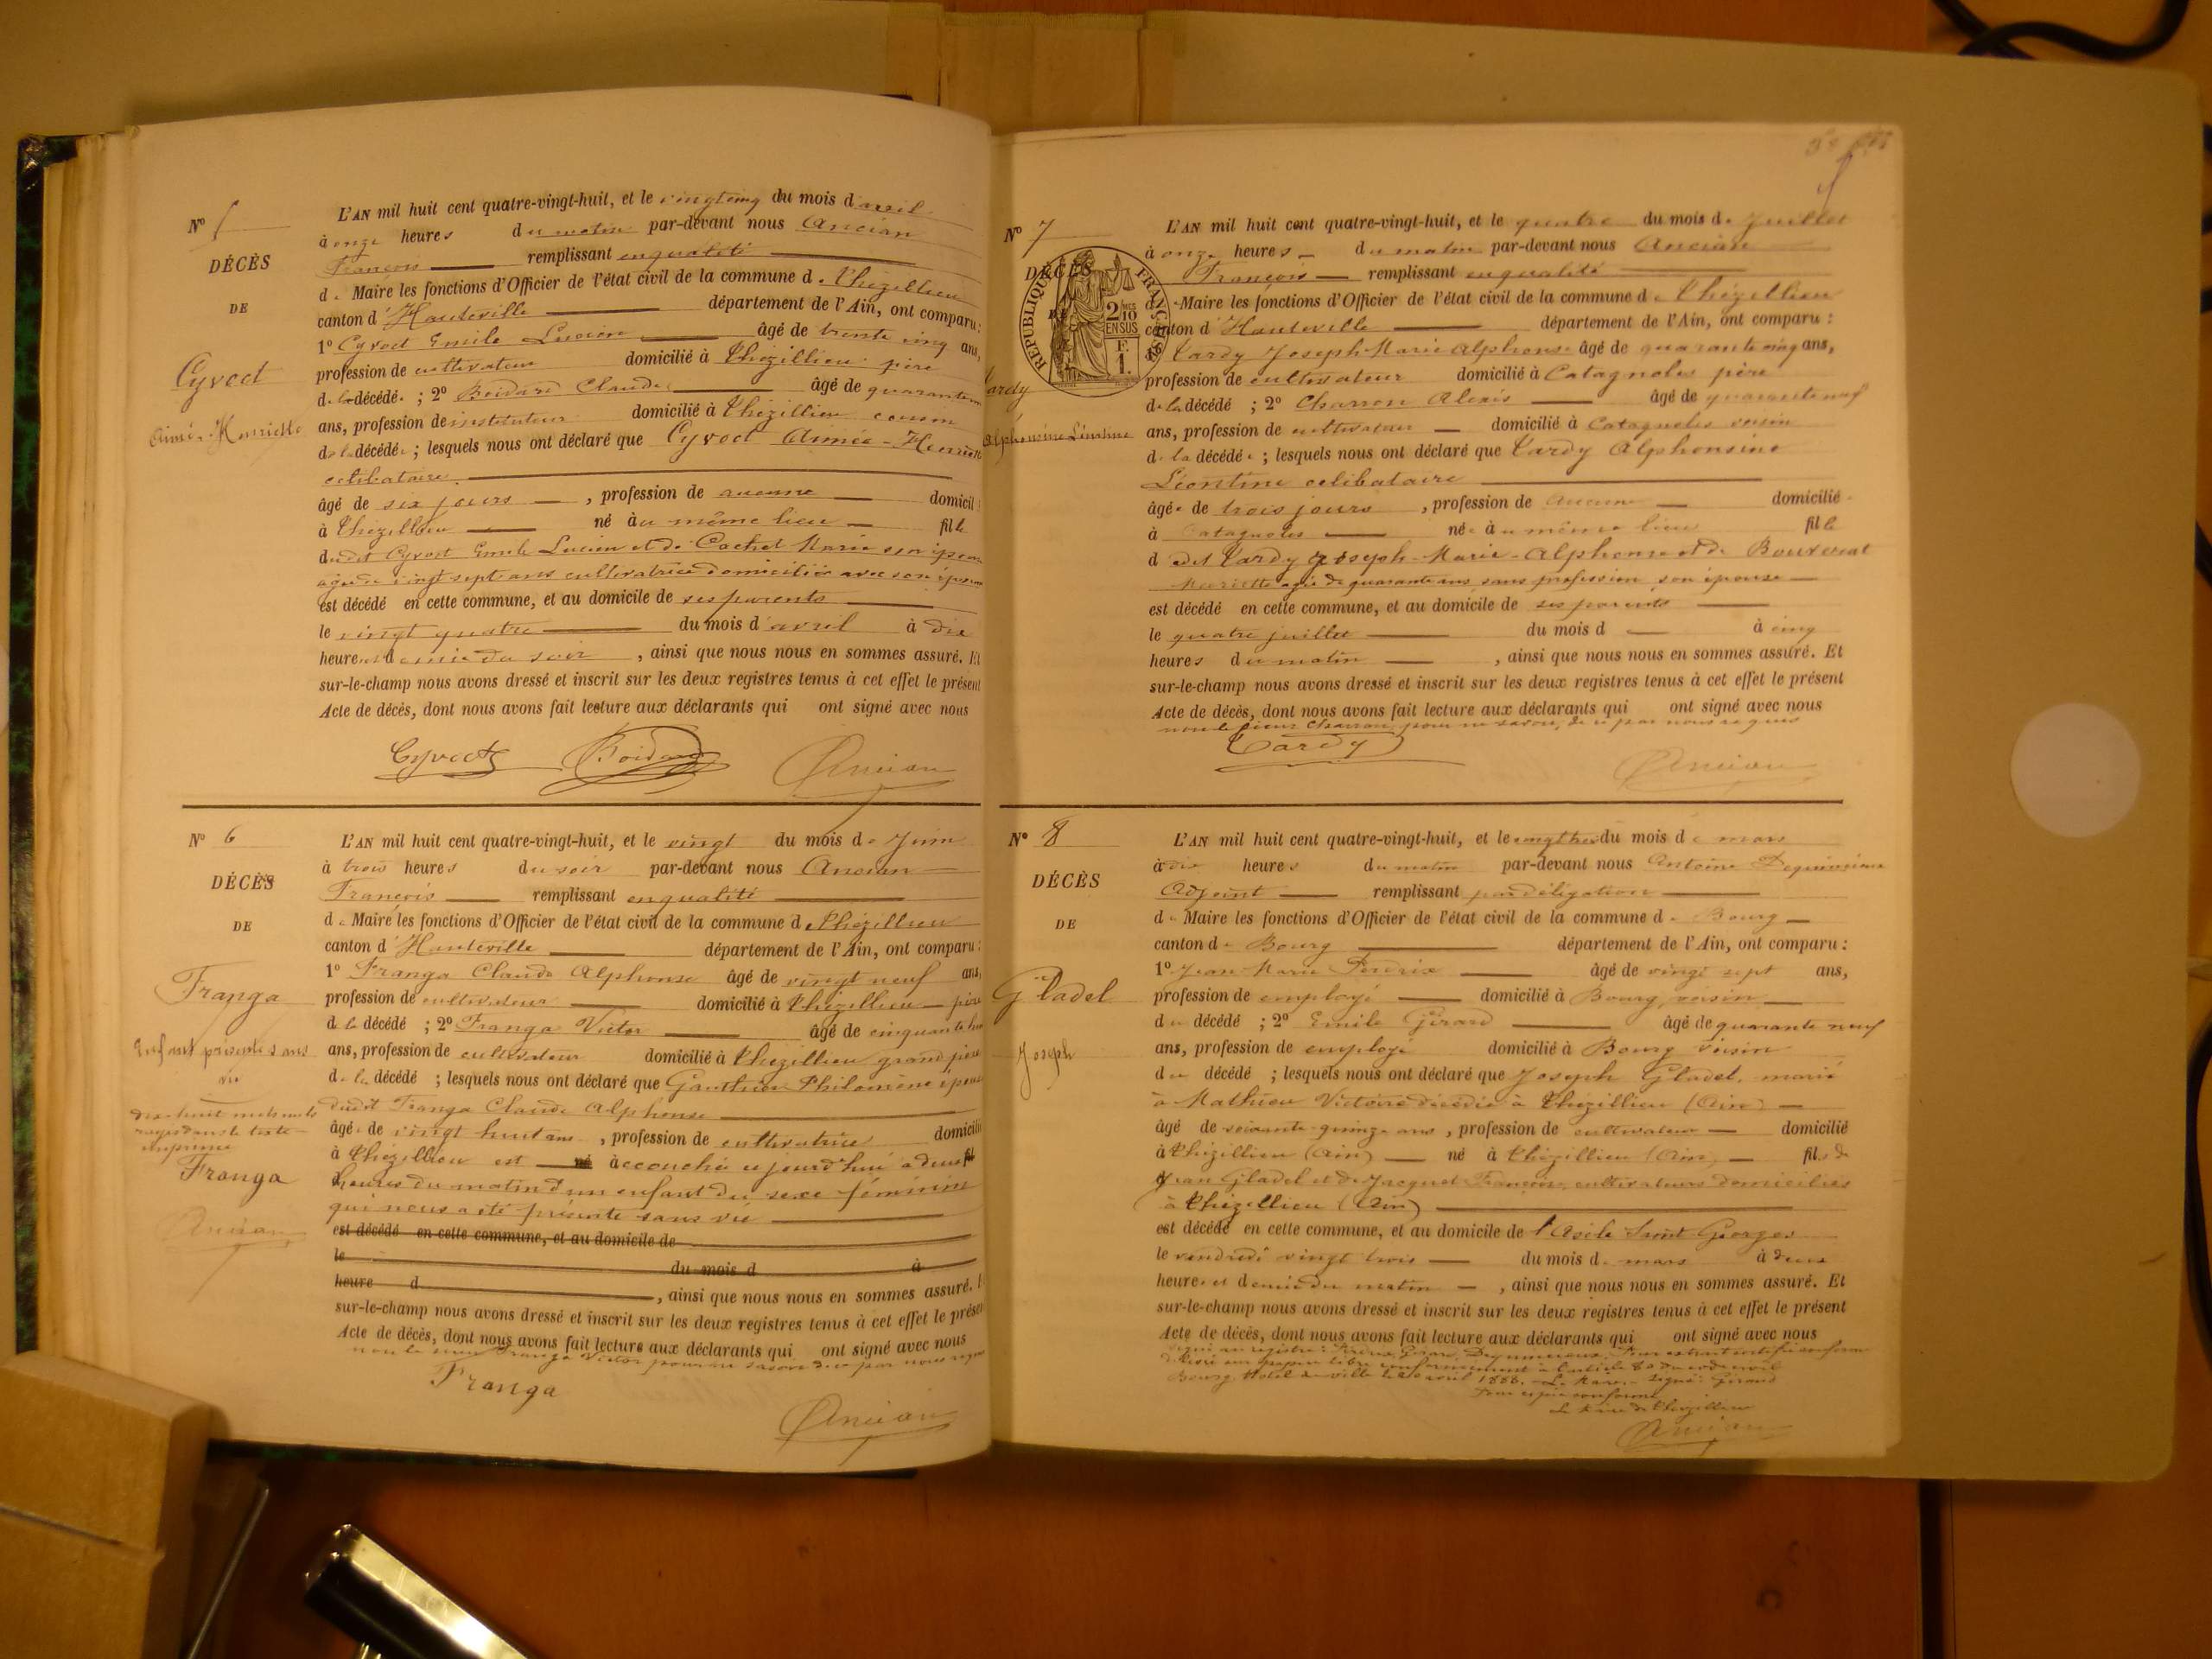 N° 5
DÉCÈS
DE
Cyvoct
Aimée-Henriette
L'AN mil huit cent quatre-vingt-huit, et le vingt cinq du mois d'avril
à onze heures du matin par-devant nous Ancian
François remplissant en qualité
de Maire les fonctions d'Officier de l'état civil de la commune de Thézillieu
canton d'Hauteville département de l'Ain, ont comparu :
1° Cyvoct Emile Lucien âgé de trente cinq ans,
profession de cultivateur domicilié à Thézillieu père
de la décédée ; 2° Boidard Claude âgé de quarante
ans, profession de instituteur domicilié à Thézillieu cousin
de la décédée ; lesquels nous ont déclaré que Cyvoct Aimée-Henriette
célibataire
âgé de six jours , profession de aucune domicilié
à Thézillieu né à u même lieu fille
dudit Cyvoct Emile Lucien et de Cochet Marie son épouse
agée de vingt sept ans cultivatrice domiciliée avec son époux
est décédé en cette commune, et au domicile de ses parents
le vingt quatre du mois d'avril à dix
heures et demie du soir , ainsi que nous nous en sommes assuré. Et
sur-le-champ nous avons dressé et inscrit sur les deux registres tenus à cet effet le présent
Acte de décès, dont nous avons fait lecture aux déclarants qui ont signé avec nous
Cyvoct Boidard Ancian
N° 6
DÉCÈS
DE
Franga
Enfant présenté sans
vie
dix-huit mots nuls
rayés dans le texte
imprimé
Franga
Ancian
L'AN mil huit cent quatre-vingt-huit, et le vingt du mois de Juin
à trois heures du soir par-devant nous Ancian
François remplissant en qualité
de Maire les fonctions d'Officier de l'état civil de la commune de Thézillieu
canton d'Hauteville département de l'Ain, ont comparu :
1° Franga Claude Alphonse âgé de vingt neuf ans,
profession de cultivateur domicilié à Thézillieu père
de la décédé ; 2° Franga Victor âgé de cinquante huit
ans, profession de cultivateur domicilié à Thézillieu grand père
de la décédé ; lesquels nous ont déclaré que Gauthier Philomène épouse
dudit Franga Claude Alphonse
âgée de vingt huit ans , profession de cultivatrice domicilié
à Thézillieu est né à ccouchée ce jourd'hui a deux fil
heures du matin d'un enfant du sexe féminin
qui nous a été présenté sans vie
est décédé en cette commune, et au domicile de
le du mois d à
heure d , ainsi que nous nous en sommes assuré. Et
sur-le-champ nous avons dressé et inscrit sur les deux registres tenus à cet effet le présent
Acte de décès, dont nous avons fait lecture aux déclarants qui ont signé avec nous
non le sieur Franga Victor pour ne savoir de ce par nous requis
Franga
Ancian
N° 7
DÉCÈS
DE
RÉPUBLIQUE FRANÇAISE
2/10 EN SUS
F.
1.
Tardy
Alphonsine Léontine
L'AN mil huit cent quatre-vingt-huit, et le quatre du mois de Juillet
à onze heures du matin par-devant nous Ancian
François remplissant en qualité
de Maire les fonctions d'Officier de l'état civil de la commune de Thézillieu
canton d'Hauteville département de l'Ain, ont comparu :
Tardy Joseph-Marie Alphonse âgé de quarante cinq ans,
profession de cultivateur domicilié à Catagnoles père
de la décédé ; 2° Charron Alexis âgé de quarante neuf
ans, profession de cultivateur domicilié à Catagnoles voisin
de la décédée ; lesquels nous ont déclaré que Tardy Alphonsine
Léontine célibataire
âgée de trois jours , profession de aucune domicilié
à Catagnoles née à u même lieu fille
dudit Tardy Joseph-Marie-Alphonse et de Bouverat
Mariette agée de quarante ans sans profession son épouse
est décédé en cette commune, et au domicile de ses parents
le quatre juillet du mois d à cinq
heures du matin , ainsi que nous nous en sommes assuré. Et
sur-le-champ nous avons dressé et inscrit sur les deux registres tenus à cet effet le présent
Acte de décès, dont nous avons fait lecture aux déclarants qui ont signé avec nous
non le sieur Charron pour ne savoir, de ce par nous requis
Tardy
Ancian
N° 8
DÉCÈS
DE
Gladel
Joseph
L'AN mil huit cent quatre-vingt-huit, et le vingt trois du mois de mars
à dix heures du matin par-devant nous Antoine
Adjoint remplissant par délégation
de Maire les fonctions d'Officier de l'état civil de la commune de Bourg
canton de Bourg département de l'Ain, ont comparu :
1° Jean Marie Perdrix âgé de vingt sept ans,
profession de employé domicilié à Bourg voisin
du décédé ; 2° Emile Girard âgé de quarante neuf
ans, profession de employé domicilié à Bourg voisin
du décédé ; lesquels nous ont déclaré que Joseph Gladel, marié
à Mathieu Victoire décédée à Thézillieu (Ain)
âgé de soixante quinze ans , profession de cultivateur domicilié
à Thézillieu (Ain) né à Thézillieu (Ain) fils de
Jean Gladel et de Jacquet Françoise cultivateurs domiciliés
à Thézillieu (Ain)
est décédé en cette commune, et au domicile de l'Asile Saint Georges
le vendredi vingt trois du mois de mars à deux
heures et demie du matin , ainsi que nous nous en sommes assuré. Et
sur-le-champ nous avons dressé et inscrit sur les deux registres tenus à cet effet le présent
Acte de décès, dont nous avons fait lecture aux déclarants qui ont signé avec nous
signé au registre : Perdrix, Girard, Pour extrait certifié conforme
délivré sur papier libre conformément à l'article 80 du code civil
Bourg, Hôtel de ville le avril 1888. Le Maire signé : Girard
Pour copie conforme
Le Maire de Thézillieu
Ancian